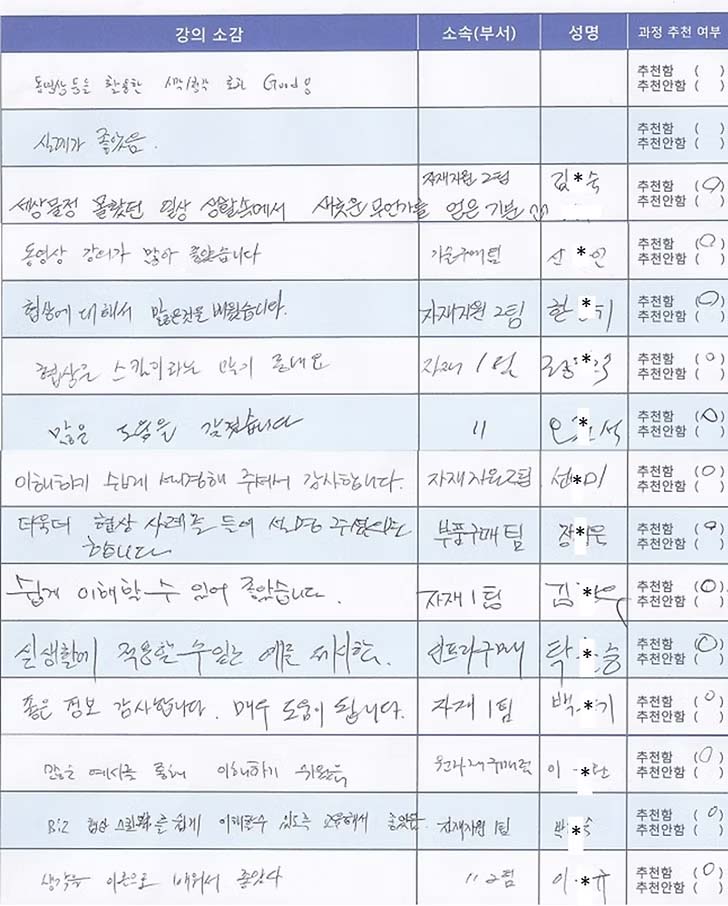 강의 소감 소속(부서) 성명 과정 추천 여부
동영상등을 활용한 시각/청각 효과 Good!
추천함 ( )
추천안함 ( )
설계가 좋았음.
추천함 ( )
추천안함 ( )
자재지원 2팀 김*숙
세상물정 몰랐던 일상 생활속에서 새로운 무언가를 얻은 기분
추천함 (O)
추천안함 ( )
동영상 강의가 많아 좋았습니다 기술구매팀 *인
추천함 (O)
추천안함 ( )
협상에 대해서 많은것을 배웠습니다. 자재지원 2팀 한*기
추천함 (O)
추천안함 ( )
협상은 스킬이라는 자재 1팀
추천함 (O)
추천안함 ( )
많은 도움을 〃 오*석
추천함 (O)
추천안함 ( )
이해하기 쉽게 설명해 주셔서 감사합니다. 자재지원2팀 선*미
추천함 (O)
추천안함 ( )
더욱더 협상 사례를 들어 설명 부품구매팀 장*은
합니다
추천함 (O)
추천안함 ( )
쉽게 이해할 수 있어 좋았습니다. 자재1팀 김*
추천함 (O)
추천안함 ( )
실생활에 적용할 수 있는 예를 제시함. 인프라구매 탁*승
추천함 (O)
추천안함 ( )
좋은 정보 감사합니다. 매우 도움이 됩니다. 자재 1팀 백*기
추천함 (O)
추천안함 ( )
많은 예시를 통해 이해하기 쉬웠음 원자재구매팀 이*란
추천함 (O)
추천안함 ( )
Biz 협상 스킬을 쉽게 이해할수 있도록 교육해서 좋았음. 자재지원 1팀 박*숙
추천함 (O)
추천안함 ( )
생각을 이론으로 배워서 좋았다 〃 2팀 이*규
추천함 (O)
추천안함 ( )